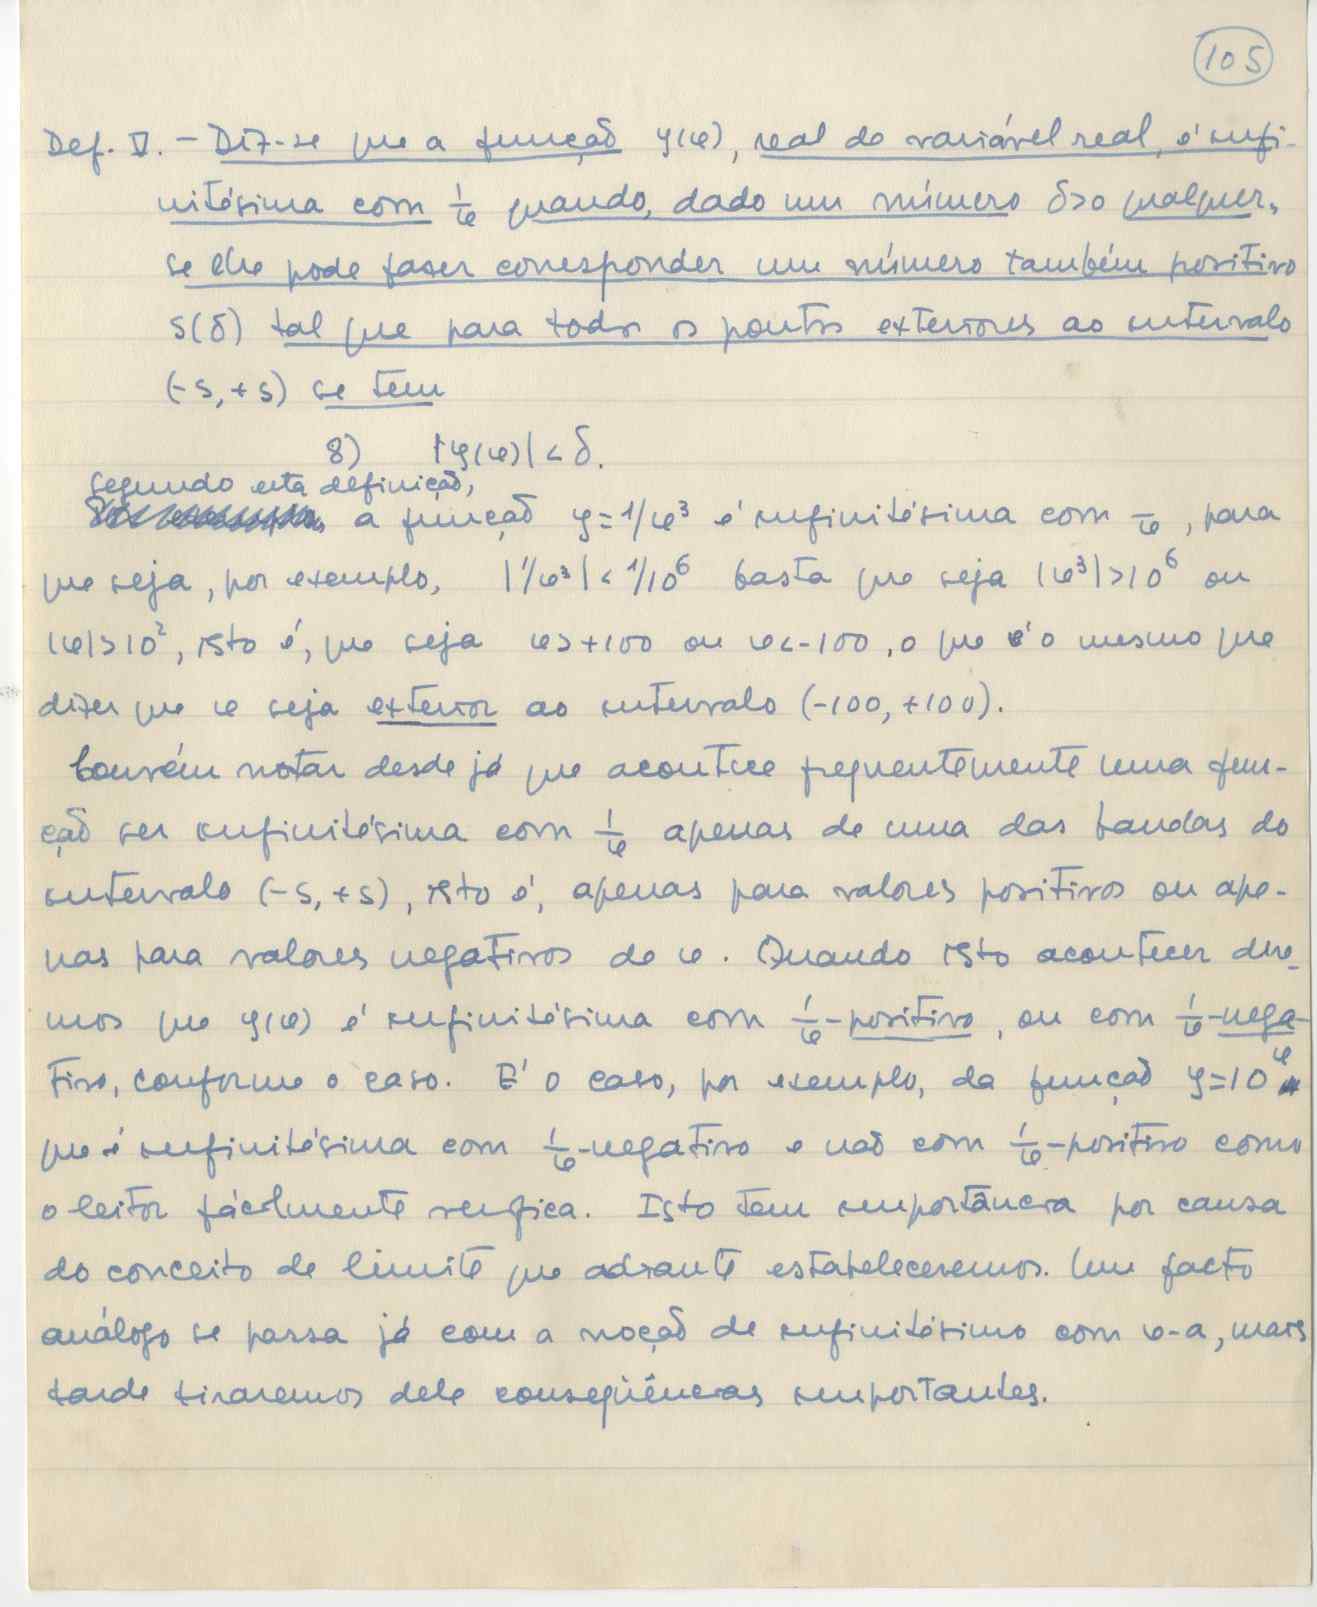 105
Def. V. – Diz-se que a função y(x), real de variável real, é infi-
nitésima com 1/x quando, dado um número δ>0 qualquer,
se lhe pode fazer corresponder um número também positivo
s(δ) tal que para todos os pontos exteriores ao intervalo
(-s, +s) se tem
8) |y(x)| < δ.
segundo esta definição,
a função y = 1/x³ é infinitésima com 1/x, para
que seja, por exemplo, |1/x³| < 1/10⁶ basta que seja |x³| > 10⁶ ou
|x| > 10², isto é, que seja x > +100 ou x < -100, o que é o mesmo que
dizer que x seja exterior ao intervalo (-100, +100).
Convém notar desde já que acontece frequentemente uma fun-
ção ser infinitésima com 1/x apenas de uma das bandas do
intervalo (-s, +s), isto é, apenas para valores positivos ou ape-
nas para valores negativos de x. Quando isto acontecer dire-
mos que y(x) é infinitésima com 1/x-positivo, ou com 1/x-nega-
tivo, conforme o caso. E' o caso, por exemplo, da função y=10ˣ
que é infinitésima com 1/x-negativo e não com 1/x-positivo como
o leitor fácilmente verifica. Isto tem importância por causa
do conceito de limite que adiante estabeleceremos. Um facto
análogo se passa já com a noção de infinitésimo com x-a, mais
tarde tiraremos dele conseqüências importantes.